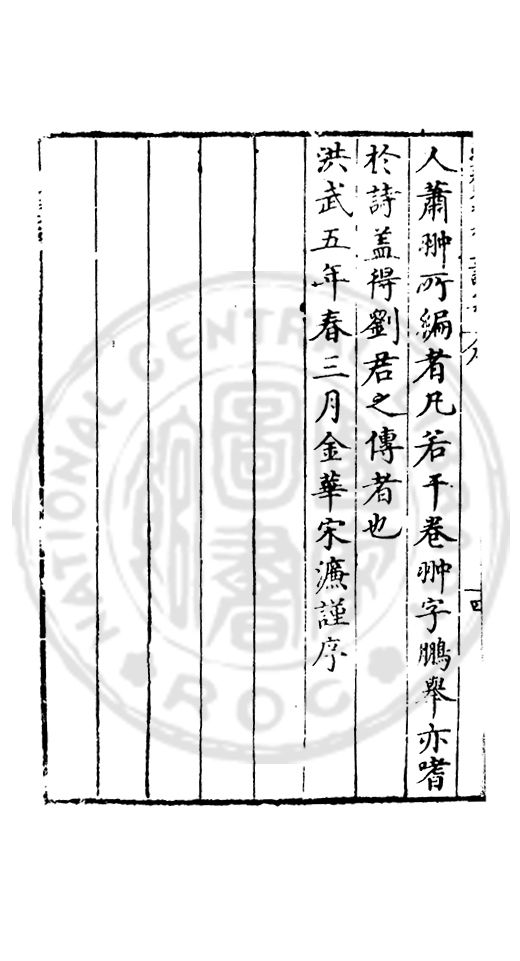 人蕭翀所編者凡若干卷翀字鵬舉亦嗜
於詩蓋得劉君之傳者也
洪武五年春三月金華宋濂謹序
四
NATIONAL CENTRAL
ROC
圖
書